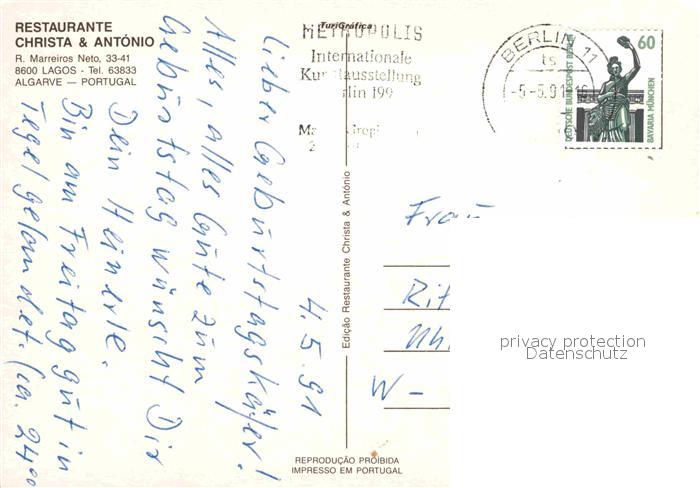 RESTAURANTE
CHRISTA & ANTÓNIO
R. Marreiros Neto, 33-41
8600 LAGOS - Tel. 63833
ALGARVE — PORTUGAL
TuriGráfica
METROPOLIS
Internationale
Kunstausstellung
BERLIN 11
ts
-5-5.91-16
60
DEUTSCHE BUNDESPOST BERLIN
BAYARIA MÜNCHEN
4.5.91
Lieber Geburtstagskäfer!
Alles, alles Gute zum
Geburtstag wünscht Dir
Dein Heinerle.
Bin am Freitag gut in
Tegel gelandet. (ca. 24⁰⁰
Edição Restaurante Christa & António
Frau
W -
REPRODUÇÃO PROIBIDA
IMPRESSO EM PORTUGAL
privacy protection
Datenschutz